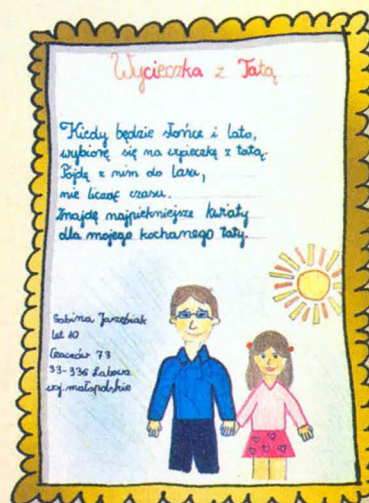 Wycieczka z Tatą
Kiedy będzie słońce i lato,
wybiorę się na wycieczkę z tatą.
Pójdę z nim do lasu,
nie licząc czasu.
Znajdę najpiękniejsze kwiaty
dla mojego kochanego taty.
Sabina Jarzębiak
lat 10
73
33-336 Łabowa
woj. małopolskie